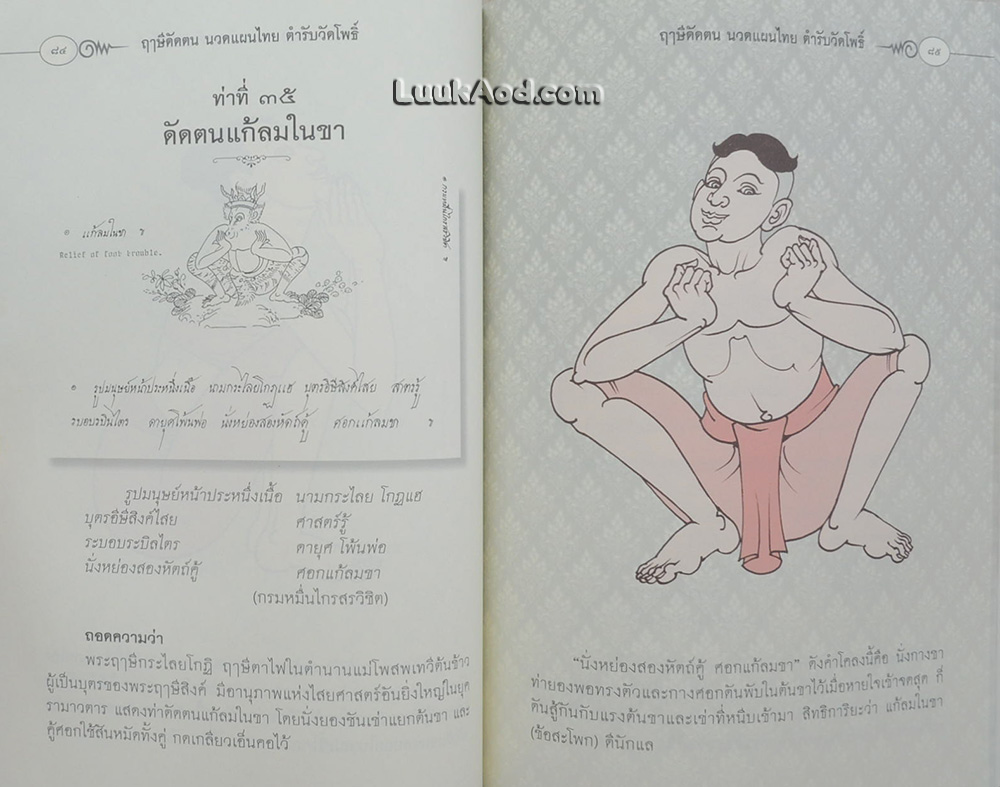 ๘๔
ฤๅษีดัดตน นวดแผนไทย ตำรับวัดโพธิ์
ท่าที่ ๓๕
ดัดตนแก้ลมในขา
๏ แก้ลมในขา ฯ
Relief of foot trouble.
๏ กรมหมื่นไกรสรวิชิต ฯ
๏ รูปมนุษย์หน้าประหนึ่งเนื้อ นามกระไลยโกฏแฮ บุตรอิษีสิงค์ไสย สาตรรู้
ระบอบรบินไตร ดายุศโพ้นพ่อ นั่งหย่องสองหัตถ์คู้ ศอกแก้ลมขา ฯ
รูปมนุษย์หน้าประหนึ่งเนื้อ นามกระไลย โกฏแฮ
บุตรอิษิสิงค์ไสย ศาสตร์รู้
ระบอบระบิลไตร ดายุศ โพ้นพ่อ
นั่งหย่องสองหัตถ์คู้ ศอกแก้ลมขา
(กรมหมื่นไกรสรวิชิต)
ถอดความว่า
พระฤๅษีกระไลยโกฏิ ฤๅษีตาไฟในตำนานแม่โพสพเทวีต้นข้าว
ผู้เป็นบุตรของพระฤๅษีสิงค์ มีอานุภาพแห่งไสยศาสตร์อันยิ่งใหญ่ในยุค
รามาวตาร แสดงท่าดัดตนแก้ลมในขา โดยนั่งยองชันเข่าแยกต้นขา และ
คู้ศอกใช้สันหมัดทั้งคู่ กดเกลียวเอ็นคอไว้
ฤๅษีดัดตน นวดแผนไทย ตำรับวัดโพธิ์
๘๕
LuukAod.com
“นั่งหย่องสองหัตถ์คู้ ศอกแก้ลมขา” ดังคำโคลงนี้คือ นั่งกางขา
ท่ายองพอทรงตัวและกางศอกดันพับในต้นขาไว้เมื่อหายใจเข้าจดสุด ก็
ดันสู้กันกับแรงต้นขาและเข่าที่หนีบเข้ามา สิทธิการิยะว่า แก้ลมในขา
(ข้อสะโพก) ดีนักแล